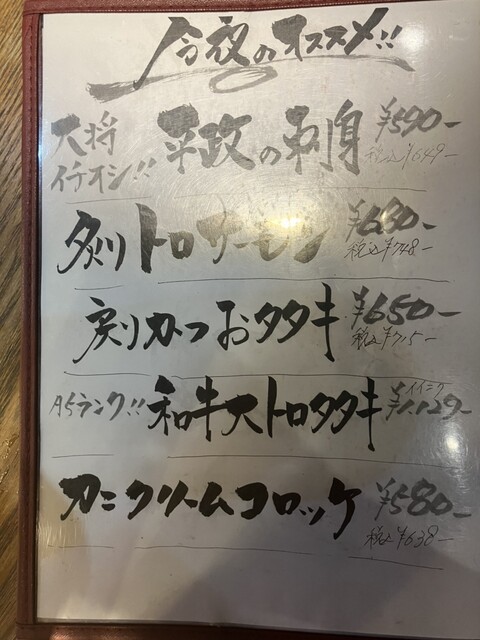 今夜のオススメ!!
大将イチオシ!! 平政の刺身 ¥590-
税込¥649-
炙りトロサーモン ¥680-
税込¥748-
戻りかつおタタキ ¥650-
税込¥715-
イイニク
A5ランク!! 和牛大トロタタキ ¥1,129-
カニクリームコロッケ ¥580-
税込¥638-